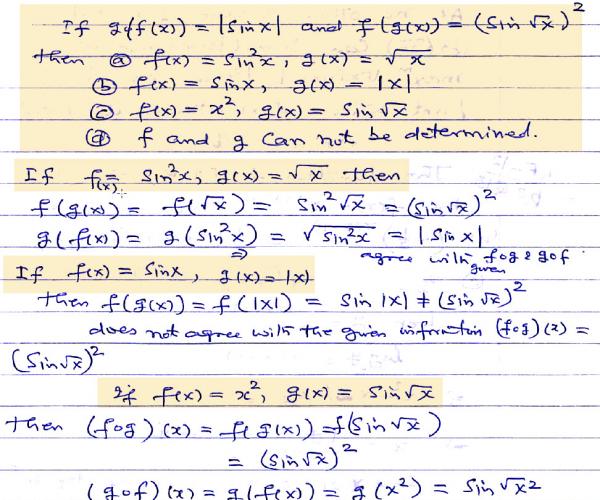 If g(f(x)) = |sin x| and f(g(x)) = (sin √x)²
then ⓐ f(x) = sin²x, g(x) = √x
ⓑ f(x) = sin x, g(x) = |x|
ⓒ f(x) = x², g(x) = sin √x
ⓓ f and g can not be determined.
If f(x) = sin²x, g(x) = √x then
f(g(x)) = f(√x) = sin²√x = (sin √x)²
g(f(x)) = g(sin²x) = √sin²x = |sin x|
⇒ agree with fog & gof given
If f(x) = sin x, g(x) = |x|
then f(g(x)) = f(|x|) = sin |x| ≠ (sin √x)²
does not agree with the given information (fog)(x) =
(sin √x)²
If f(x) = x², g(x) = sin √x
then (fog)(x) = f(g(x)) = f(sin √x)
= (sin √x)²
(gof)(x) = g(f(x)) = g(x²) = sin √x²